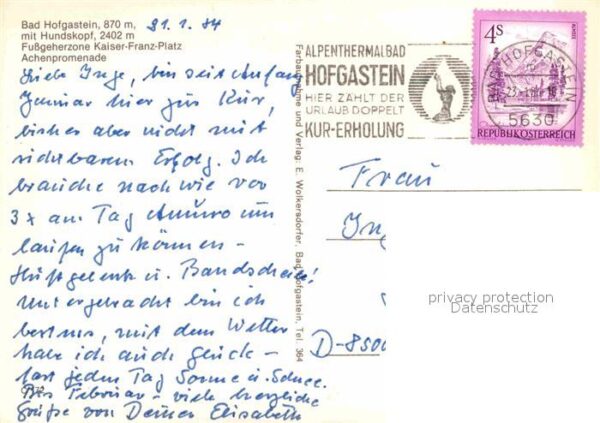 Bad Hofgastein, 870 m,
mit Hundskopf, 2402 m
Fußgeherzone Kaiser-Franz-Platz
Achenpromenade
21.1.84
Liebe Inge, bin seit Anfang
Januar hier zur Kur,
bisher aber nicht mit
sichtbarem Erfolg. Ich
brauche nach wie vor
3x am Tag um
laufen zu können -
Hüftgelenk u. Bandscheibe!
Untergebracht bin ich
bestens, mit dem Wetter
habe ich auch Glück -
fast jeden Tag Sonne u. Schnee.
Bis Februar - viele herzliche
Grüße von Deiner Elisabeth
Farbaufnahme und Verlag: E. Wolkersdorfer, Bad Hofgastein, Tel. 364
ALPENTHERMALBAD
HOFGASTEIN
HIER ZÄHLT DER
URLAUB DOPPELT
KUR-ERHOLUNG
BAD HOFGASTEIN
5630
4S
REPUBLIK ÖSTERREICH
Frau
In
D-8500
privacy protection
Datenschutz